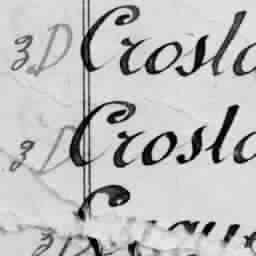 3D Crosla
3D Crosla